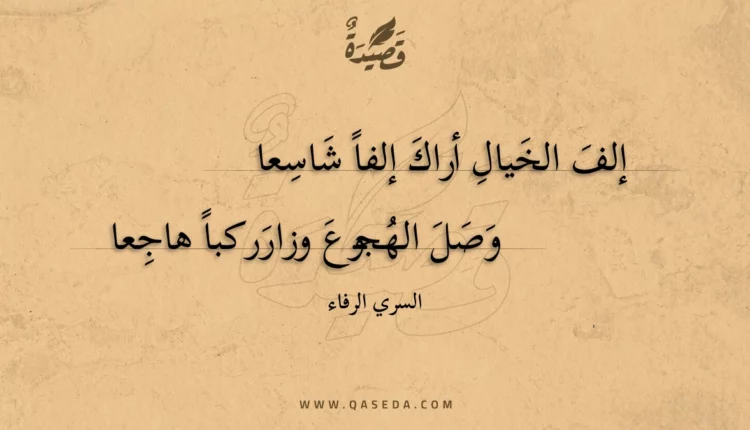 قَصِيْدَةٌ
إلفَ الخَيالِ أراكَ إلفاً شَاسِعا
وَصَلَ الهُجوعَ وزارَ ركباً هاجِعا
السري الرفاء
WWW.QASEDA.COM